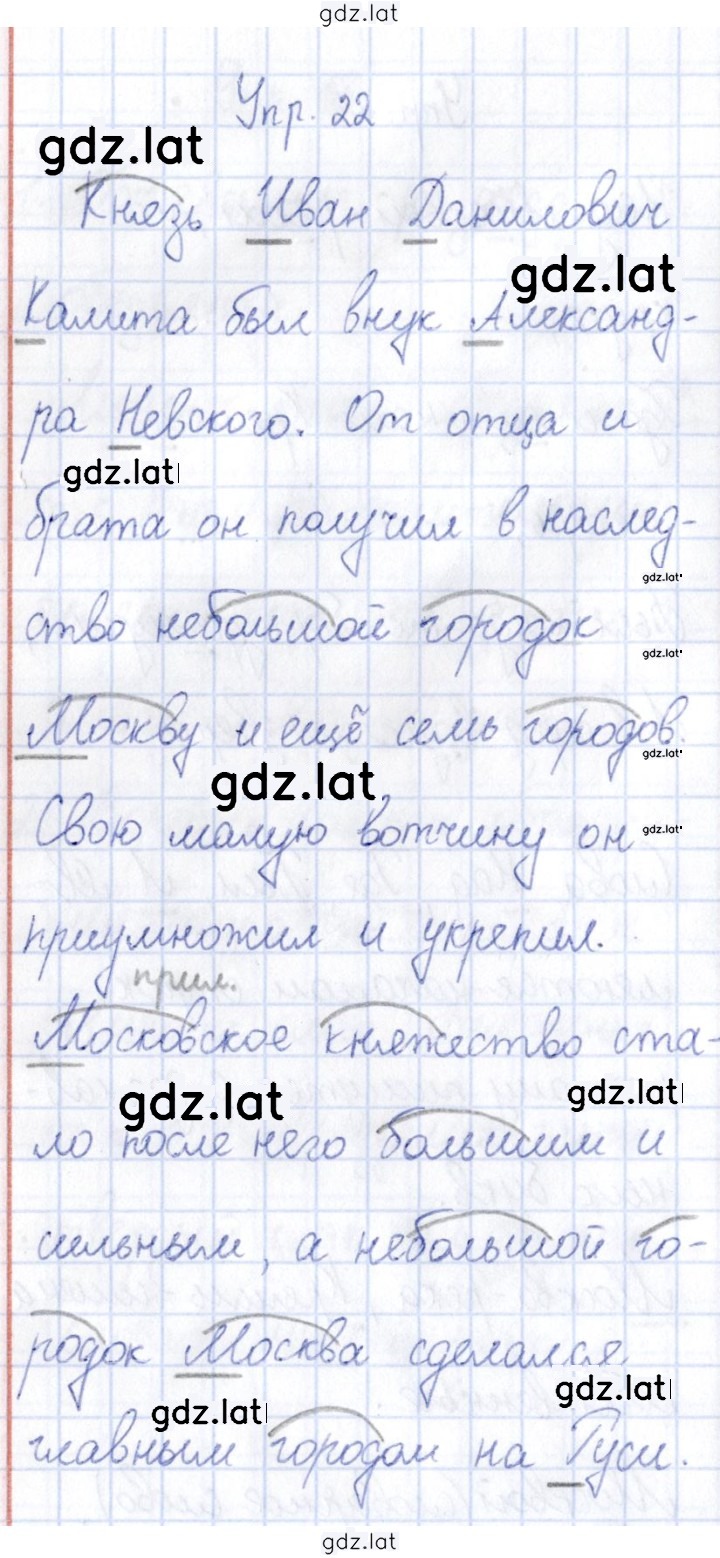 gdz.lat
Упр. 22
gdz.lat
Князь Иван Данилович
gdz.lat
Калита был внук Александ-
ра Невского. От отца и
gdz.lat
брата он получил в наслед-
gdz.lat
ство небольшой городок
gdz.lat
Москву и ещё семь городов.
gdz.lat
gdz.lat
Свою малую вотчину он
gdz.lat
приумножил и укрепил.
прил.
Московское княжество ста-
gdz.lat
gdz.lat
ло после него большим и
сильным, а небольшой го-
родок Москва сделался
gdz.lat
gdz.lat
главным городом на Руси.
gdz.lat